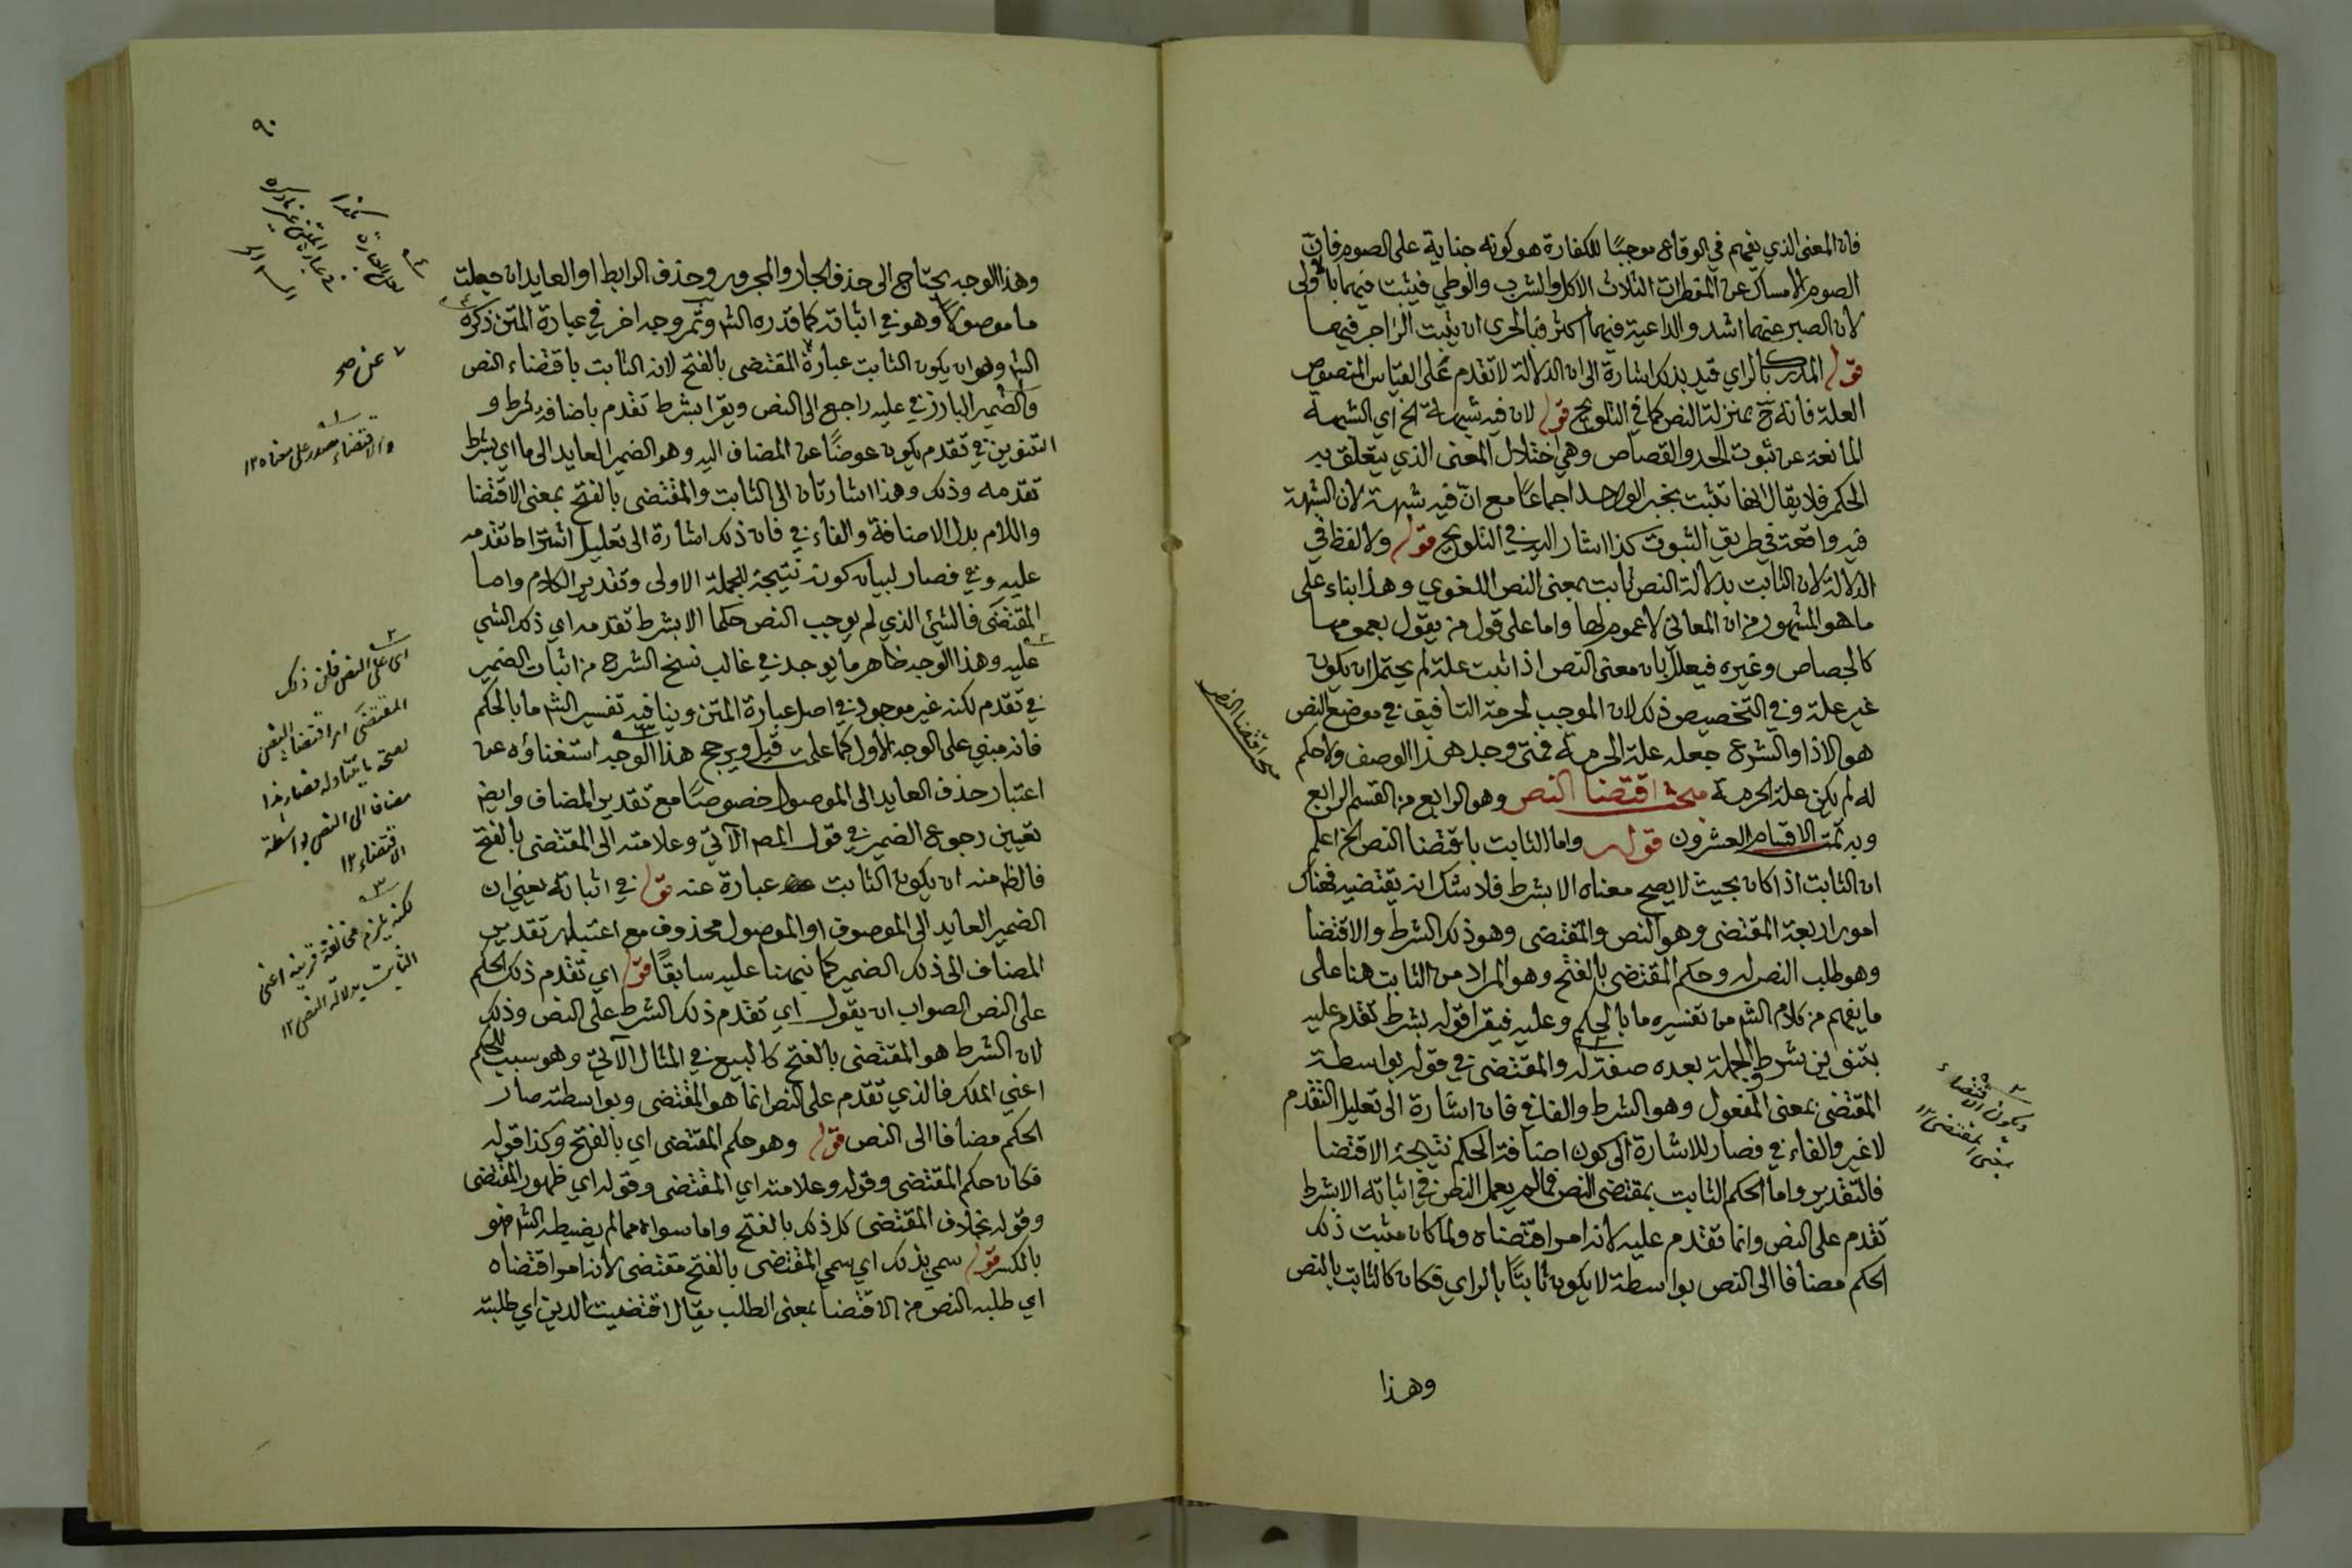 فان المعنى الذي يفهم في الوقاع موجبًا للكفارة هو كونه جناية على الصوم فانّ
الصوم الامساك عن المفطرات الثلاث الاكل والشرب والوطي فيثبت فيهما بالاولى
لان الصبر عنهما اشد والداعية فيهما اكثر فبالحرى ان يثبت الزاجر فيهما
قوله المدرك بالراي قيد بذلك اشارة الى ان الدلالة لا تقدم على القياس المنصوص
العلة فانه ح بمنزلة النص كما في التلويح قوله لان فيه شبهة الخ اي الشبهة
المانعة عن ثبوت الحد والقصاص وهي اختلال المعنى الذي يتعلق به
الحكم فلا يقال انها تثبت بخبر الواحد اجماعًا مع انّ فيه شبهة لان الشبهة
فيه واقعة في طريق الثبوت كذا اشار اليه في التلويح قوله ولا لفظ في
الدلالة لان الثابت بدلالة النص ثابت بمعنى النص اللغوي وهذا بناء على
ما هو المشهور من ان المعاني لا عموم لها واما على قول من يقول بعمومها
كالجصاص وغيره فيعلل بان معنى النص اذا ثبت علة لم يحتمل ان يكون
غير علة وفي التخصيص ذلك لان الموجب لحرمة التافيف في موضع النص
هو الاذا والشرع جعله علة الحرمة فمتى وجد هذا الوصف ولا حكم
له لم يكن علة الحرمة مبحث اقتضا النص وهو الرابع من القسم الرابع
وبه تمت الاقسام العشرون قوله واما الثابت باقتضا النص الخ اعلم
ان الثابت اذا كان بحيث لا يصح معناه الا بشرط فلا شك انه يقتضيه فهناك
امور اربعة المقتضى وهو النص والمقتضى وهو ذلك الشرط والاقتضا
وهو طلب النص له وحكم المقتضى بالفتح وهو المراد من الثابت هنا على
ما يفهم من كلام الشه من تفسيره ما بالحكم وعليه فيقرا قوله بشرط تقدم عليه
بتنوين شرط والجملة بعده صفة له والمقتضى في قوله بواسطة
المقتضى بمعنى المفعول وهو الشرط والفا في فان اشارة الى تعليل التقدم
لا غير والفاء في فصار للاشارة الى كون اضافة الحكم نتيجة الاقتضا
فالتقدير واما الحكم الثابت بمقتضى النص فما لم يعمل النص في اثباته الا بشرط
تقدم على النص وانما تقدم عليه لانه امر اقتضاه ولما كان مثبت ذلك
الحكم مضافا الى النص بواسطة لا يكون ثابتًا بالراي فكان كالثابت بالنص
وهذا
مبحث اقتضا النص
ويكون الاقتضاء
بمعنى المقتضى ١٢
٩٠
وهذا الوجه يحتاج الى حذف الجار والمجرور وحذف الرابط او العايد ان جعلت
ما موصولا وهو في اثباته كما قدره الشه وثمّ وجه اخر في عبارة المتن ذكره
الشه وهو ان يكون الثابت عبارة المقتضى بالفتح لانه الثابت باقتضاء النص
والضمير البارز في عليه راجع الى النص ويقرا بشرط تقدم باضافة شرط و
التنوين في تقدم يكون عوضًا عن المضاف اليه وهو الضمير العايد الى ما اي بشرط
تقدمه وذلك وهذا اشارتان الى الثابت والمقتضى بالفتح بمعنى الاقتضا
واللام بدل الاضافة والفاء في فان ذلك اشارة الى تعليل اشتراط تقدمه
عليه وفي فصار لبيان كونه نتيجة للجملة الاولى وتقدير الكلام واما
المقتضى فالشئ الذي لم يوجب النص حكما الا بشرط تقدمه اي ذلك الشي
عليه وهذا الوجه ظاهر ما يوجد في غالب نسخ الشرح من اثبات الضمير
في تقدم لكنه غير موجود في اصل عبارة المتن وينافيه تفسير الشه ما بالحكم
فانه مبني على الوجه الاول كما علمت قيل ويرجح هذا الوجه استغناؤه عن
اعتبار حذف العايد الى الموصول خصوصًا مع تقدير المضاف وايضا
تعيين رجوع الضمير في قول المصه الآتي وعلامته الى المقتضى بالفتح
فالظ منه ان يكون الثابت عبارة عنه قوله في اثباته يعني ان
الضمير العايد الى الموصوف او الموصول محذوف مع اعتبار تقدير
المضاف الى ذلك الضمير كما نبهنا عليه سابقًا قوله اي تقدم ذلك الحكم
على النص الصواب ان يقول اي تقدم ذلك الشرط على النص وذلك
لان الشرط هو المقتضى بالفتح كالبيع في المثال الآتي وهو سبب للحكم
اعني الملك فالذي تقدم على النص انما هو المقتضى وبواسطته صار
الحكم مضافا الى النص قوله وهو حكم المقتضى اي بالفتح وكذا قوله
فكان حكم المقتضى وقوله وعلامته اي المقتضى وقوله اي ظهور المقتضى
وقوله بخلاف المقتضى كل ذلك بالفتح واما سواه مما لم يضبطه الشه فهو
بالكسر قوله سمي بذلك اي سمي المقتضى بالفتح مقتضى لانه امر اقتضاه
اي طلبه النص من الاقتضا بمعنى الطلب يقال اقتضيت الدين اي طلبته
عن صح
والاقتضاء مصدر على معناه ١٢
اي على النص فان ذلك
المقتضى امر اقتضاه النص
لصحة ما يتناوله فصار هذا
مضافا الى النص بواسطة
الاقتضاء ١٢
لكنه يلزم مخالفة قرينه اعني
الثابت بدلالة النص ١٢